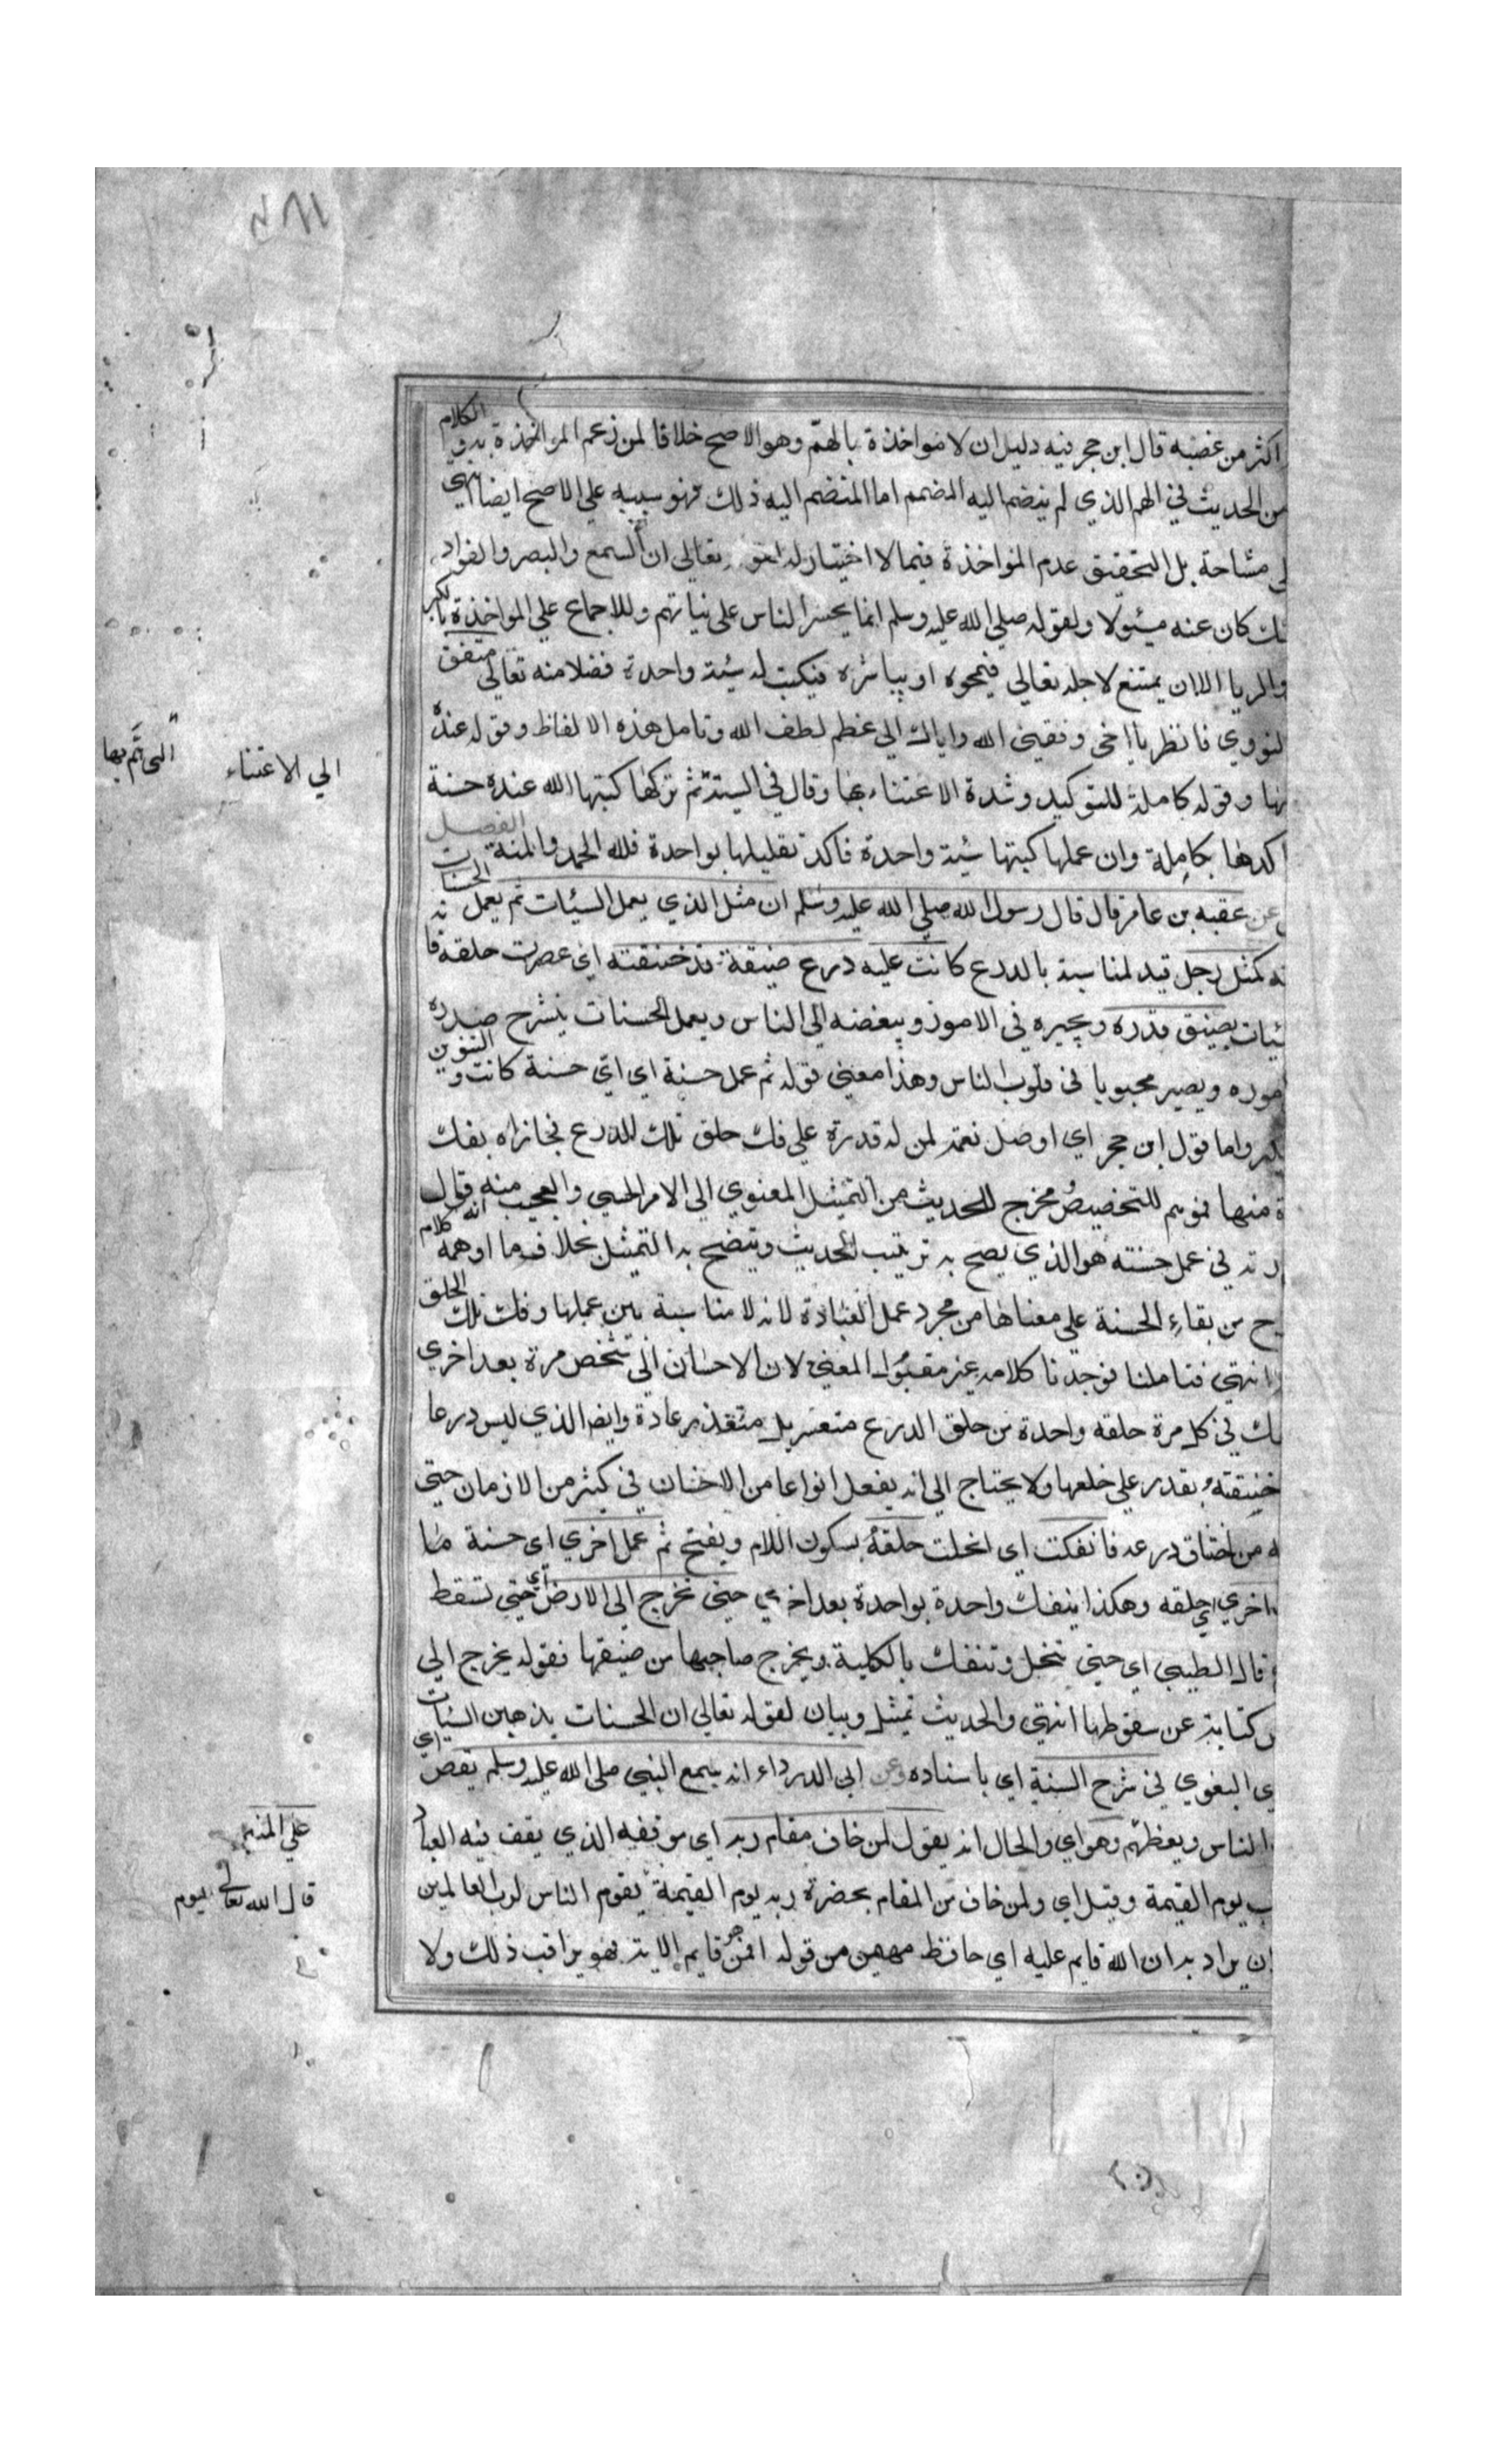 اكثر من غضبه قال ابن حجر فيه دليل ان لا مواخذة بالهمّ وهو الاصح خلافا لمن زعم المواخذة به و الكلام
من الحديث في الهم الذي لم ينضم اليه التصميم اما المنضم اليه ذلك فهو سيئة علي الاصح ايضا انتهي
مشاحة بل التحقيق عدم المواخذة فيما لا اختيار له تعالي ان السمع والبصر والفواد
كان عنه مسئولا ولقوله صلي الله عليه وسلم انما يحشر الناس علي نياتهم وللاجماع علي المواخذة بالكبر
والريا الا ان يمتنع لاجله تعالي فيمحوه او يباشره فيكتب له سيئة واحدة فضلا منه تعالي متفق
النووي فانظر يا اخي وفقني الله واياك الي عظم لطف الله وتامل هذه الالفاظ وقوله عنده
الي الاعتناء
وقوله كاملة للتوكيد وشدة الاعتناء بها وقال في السيئة ثم تركها كتبها الله عنده حسنة
التي همّ بها
اكدها بكاملة وان عملها كتبها سيئة واحدة فاكد تقليلها بواحدة فلله الحمد والمنة الفصل
عن عقبه بن عامر قال قال رسول الله صلي الله عليه وسلم ان مثل الذي يعمل السيئات ثم يعمل الحسنات
كمثل رجل قيد لمناسبة بالدرع كانت عليه درع ضيقة قد خنقته اي عصرت حلقه فا
يضيق قدره ويحيره في الامور ويبغضه الي الناس ويعمل الحسنات ينشرح صدره
اموره ويصير محبوبا في قلوب الناس وهذا معني قوله ثم عمل حسنة اي اي حسنة كانت والتنوين
واما قول ابن حجر اي اوصل نعمة لمن له قدرة علي فك حلق تلك الدرع فجازاه بفك
منها فموهم للتخصيص مخرج للحديث من التمثيل المعنوي الي الامر الحسي والعجب منه انه قال
في عمل حسنته هو الذي يصح به ترتيب الحديث ويتضح به التمثيل بخلاف ما اوهمه كلام
من بقاء الحسنة علي معناها من مجرد عمل العبادة لانه لا مناسبة بين عملها وفك تلك الحلق
انتهي فتاملنا فوجدنا كلامه غير مقبول المعني لان الاحسان الي شخص مرة بعد اخري
في كل مرة حلقه واحدة من حلق الدرع متعسر بل متعذر عادة وايضا الذي لبس درعا
خنقته يقدر علي خلعها ولا يحتاج الي انه يفعل انواعا من الاحسان في كثير من الازمان حتي
من اختناق درعه فانفكت اي انحلت حلقة بسكون اللام ويفتح ثم عمل اخري اي حسنة ما
اخري اي حلقه وهكذا ينفك واحدة بواحدة بعد اخري حتي تخرج الي الارض اي حتي تسقط
قال الطيبي اي حتي تنحل وتنفك بالكلية ويخرج صاحبها من ضيقها فقوله يخرج الي
كناية عن سقوطها انتهي والحديث تمثيل وبيان لقوله تعالي ان الحسنات يذهبن السيئات
البغوي في شرح السنة اي باسناده وعن ابي الدرداء انه سمع النبي صلي الله عليه وسلم يقص اي
علي المنبر
الناس ويعظهم وهو اي والحال انه يقول لمن خاف مقام ربه اي موقفه الذي يقف فيه العباد
قال الله تعالي يوم
يوم القيمة وقيل اي ولمن خاف من المقام بحضرة ربه يوم القيمة يقوم الناس لرب العالمين
ان يراد به ان الله قايم عليه اي حافظ مهيمن من قوله افمن هو قايم الاية فهو يراقب ذلك ولا